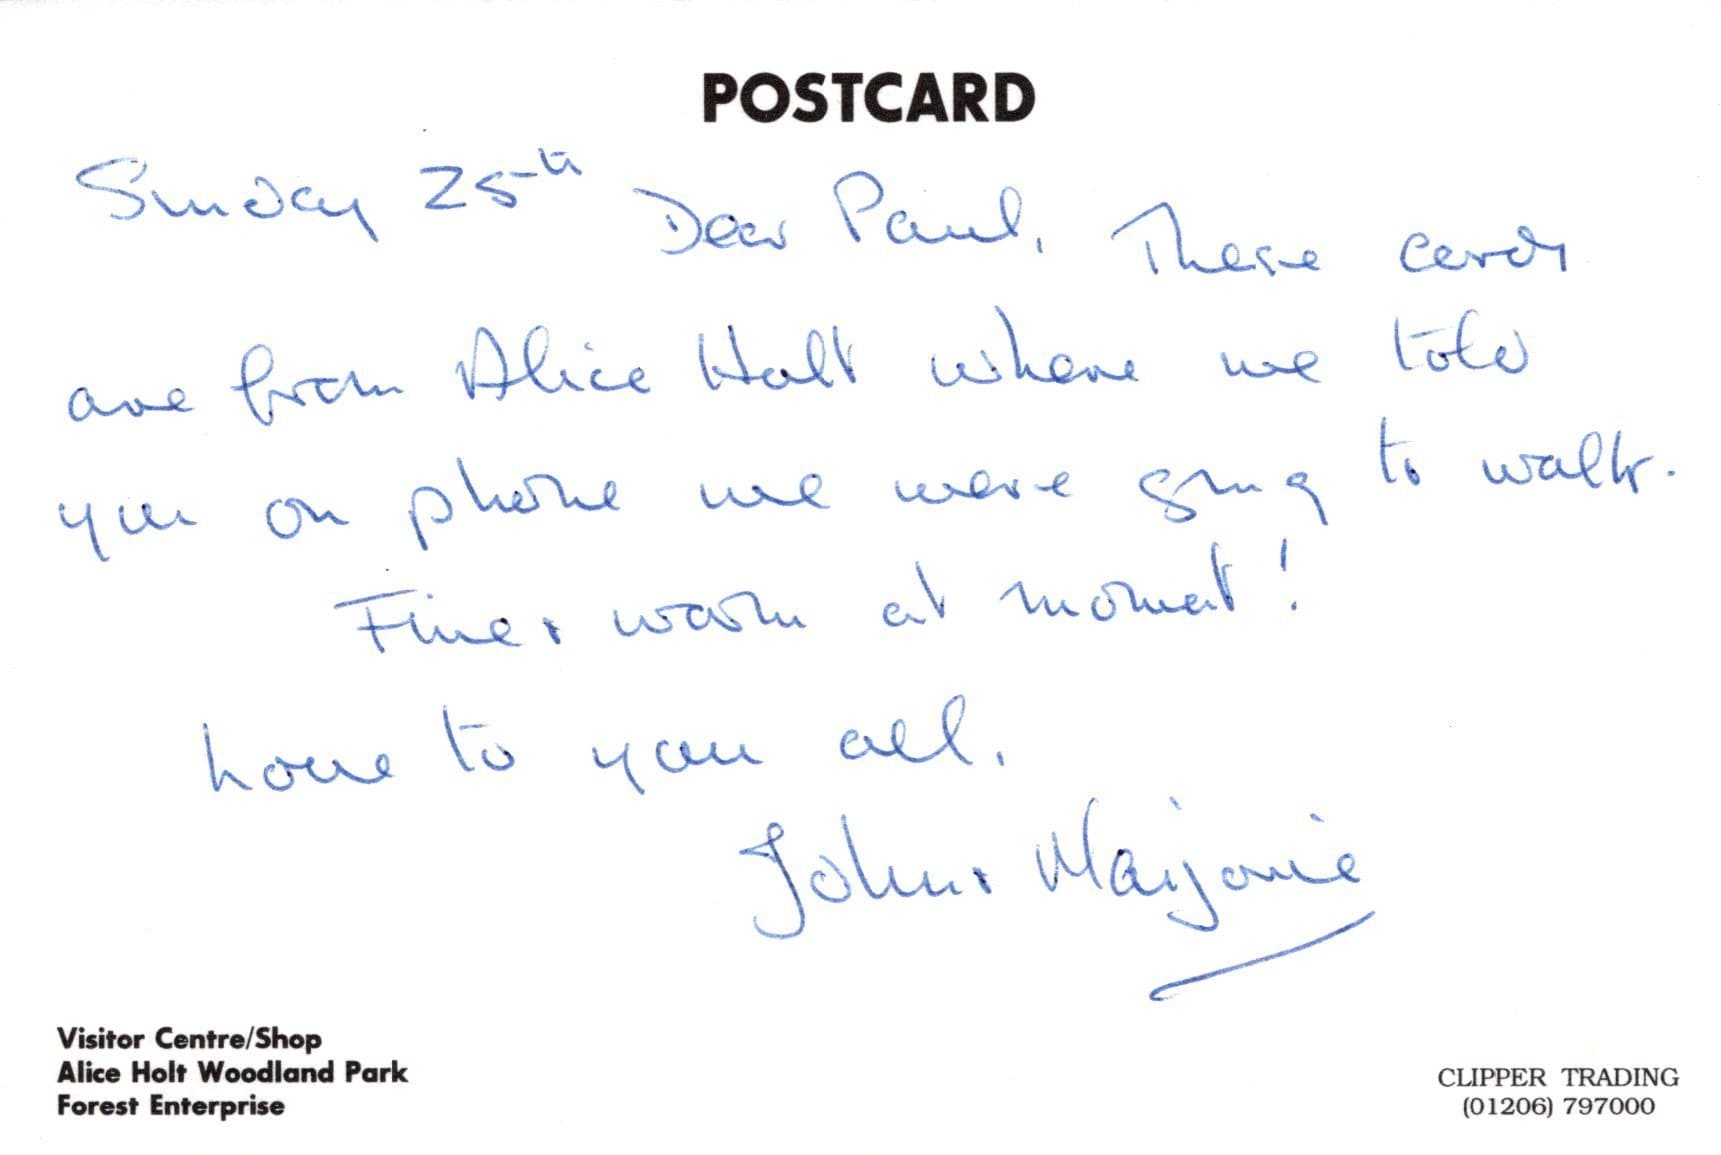 POSTCARD
Sunday 25th Dear Paul, These cards
are from Alice Holt where we told
you on phone we were going to walk.
Fine + warm at moment!
Love to you all,
John + Marjorie
Visitor Centre/Shop
Alice Holt Woodland Park
Forest Enterprise
CLIPPER TRADING
(01206) 797000